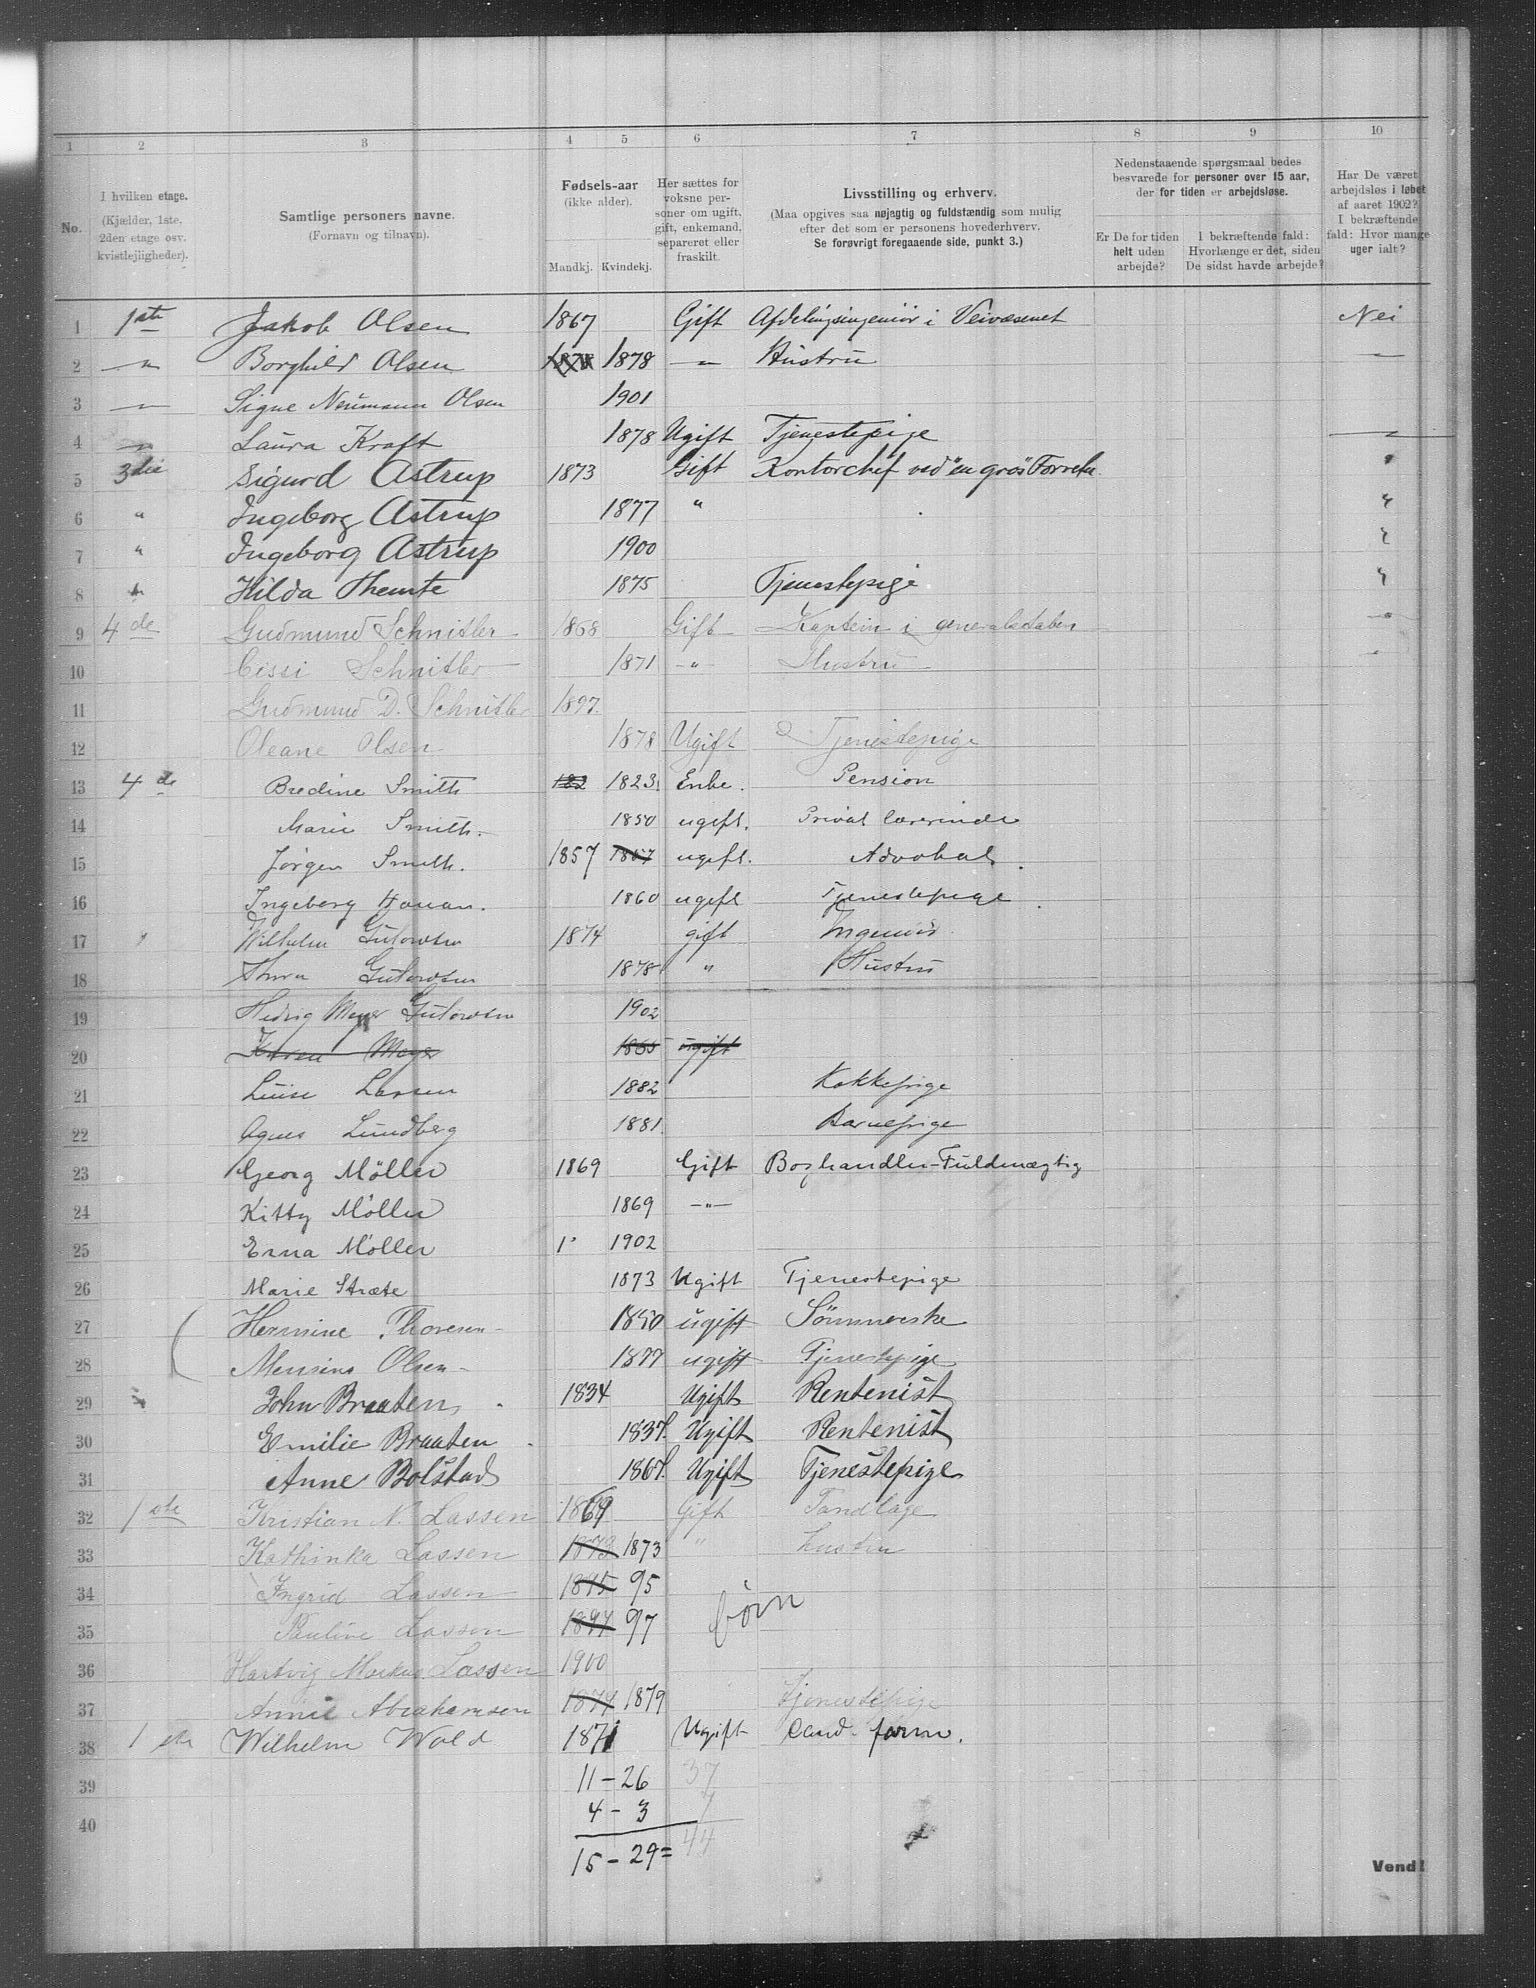 1 2 3 4 5 6 7 8 9 10
No.
I hvilken etage.
(Kjælder, 1ste, 2den etage osv. kvistleiligheder).
Samtlige personers navne.
(Fornavn og tilnavn).
Fødsels-aar
(ikke alder).
Mandkj. Kvindekj.
Her sættes for voksne personer om ugift, gift, enkemand, separeret eller fraskilt.
Livsstilling og erhverv.
(Maa opgives saa nøjagtig og fuldstændig som mulig efter det som er personens hovederhverv. Se forøvrigt foregaaende side, punkt 3.)
Nedenstaaende spørgsmaal bedes besvarede for personer over 15 aar, der for tiden er arbejdsløse.
Er De for tiden helt uden arbejde?
I bekræftende fald: Hvorlænge er det, siden De sidst havde arbejde?
Har De været arbejdsløs i løbet af aaret 1902? I bekræftende fald: Hvor mange uger ialt?
1 1ste Jakob Olsen 1867 Gift Afdelingsingeniör i Veivæsenet Nei
2 " Borghild Olsen 1878 1878 " Hustru "
3 " Signe Neumann Olsen 1901
4 " Laura Kraft 1878 Ugift Tjenestepige "
5 3die Sigurd Astrup 1873 Gift Kontorchef ved "en gros" Forretn. "
6 " Ingeborg Astrup 1877 " "
7 " Ingeborg Astrup 1900 "
8 " Hilda Themte 1875 Tjenestepige "
9 4de Gudmund Schnitler 1868 Gift Kaptein i generalstaben "
10 Cissi Schnitler 1871 " Hustru "
11 Gudmund D. Schnitler 1897.
12 Oleane Olsen 1878 Ugift Tjenestepige
13 4de Bredine Smith 182 1823. Enke. Pension
14 Marie Smith. 1850 ugift. Privat lærerinde
15 Jörgen Smith. 1857 1857 ugift. Advokat.
16 Ingeborg 1860 ugift Tjenestepige.
17 " Wilhelm Gulowsen 1874 gift Ingeniör.
18 Thora Gulowsen 1878 " Hustru
19 Hedvig Meyer Gulowsen 1902
20 Karen Meyer 1865 ugift
21 Luise Larsen 1882 Kokkepige
22 Agnes Lundberg 1881. Barnepige
23 Georg Möller 1869 Gift Boghandler-Fuldmægtig
24 Kitty Möller 1869 "
25 Erna Möller 1 1902
26 Marie Stræte 1873 Ugift Tjenestepige
27 Hermine Thoresen 1850 ugift Sömmerske
28 Mensine Olsen 1877 ugift Tjenestepige
29 John Braaten 1834 Ugift Rentenist
30 Emilie Braaten 1837. Ugift Rentenist
31 Anne Bolstad 1867. Ugift Tjenestepige
32 1ste Kristian N. Lassen 1869 Gift Tandlæge
33 Kathinka Lassen 1873 1873 " hustru
34 Ingrid Lassen 1895 95
35 Pauline Lassen 1897 97 börn
36 Hartvig Markus Lassen 1900
37 Annie Abrahamsen 1879 1879 Tjenestepige
38 1ste Wilhelm Wold 1871 Ugift Cand. farm.
39 11 - 26 37
40 4 - 3 7
15 - 29 = 44
Vend!